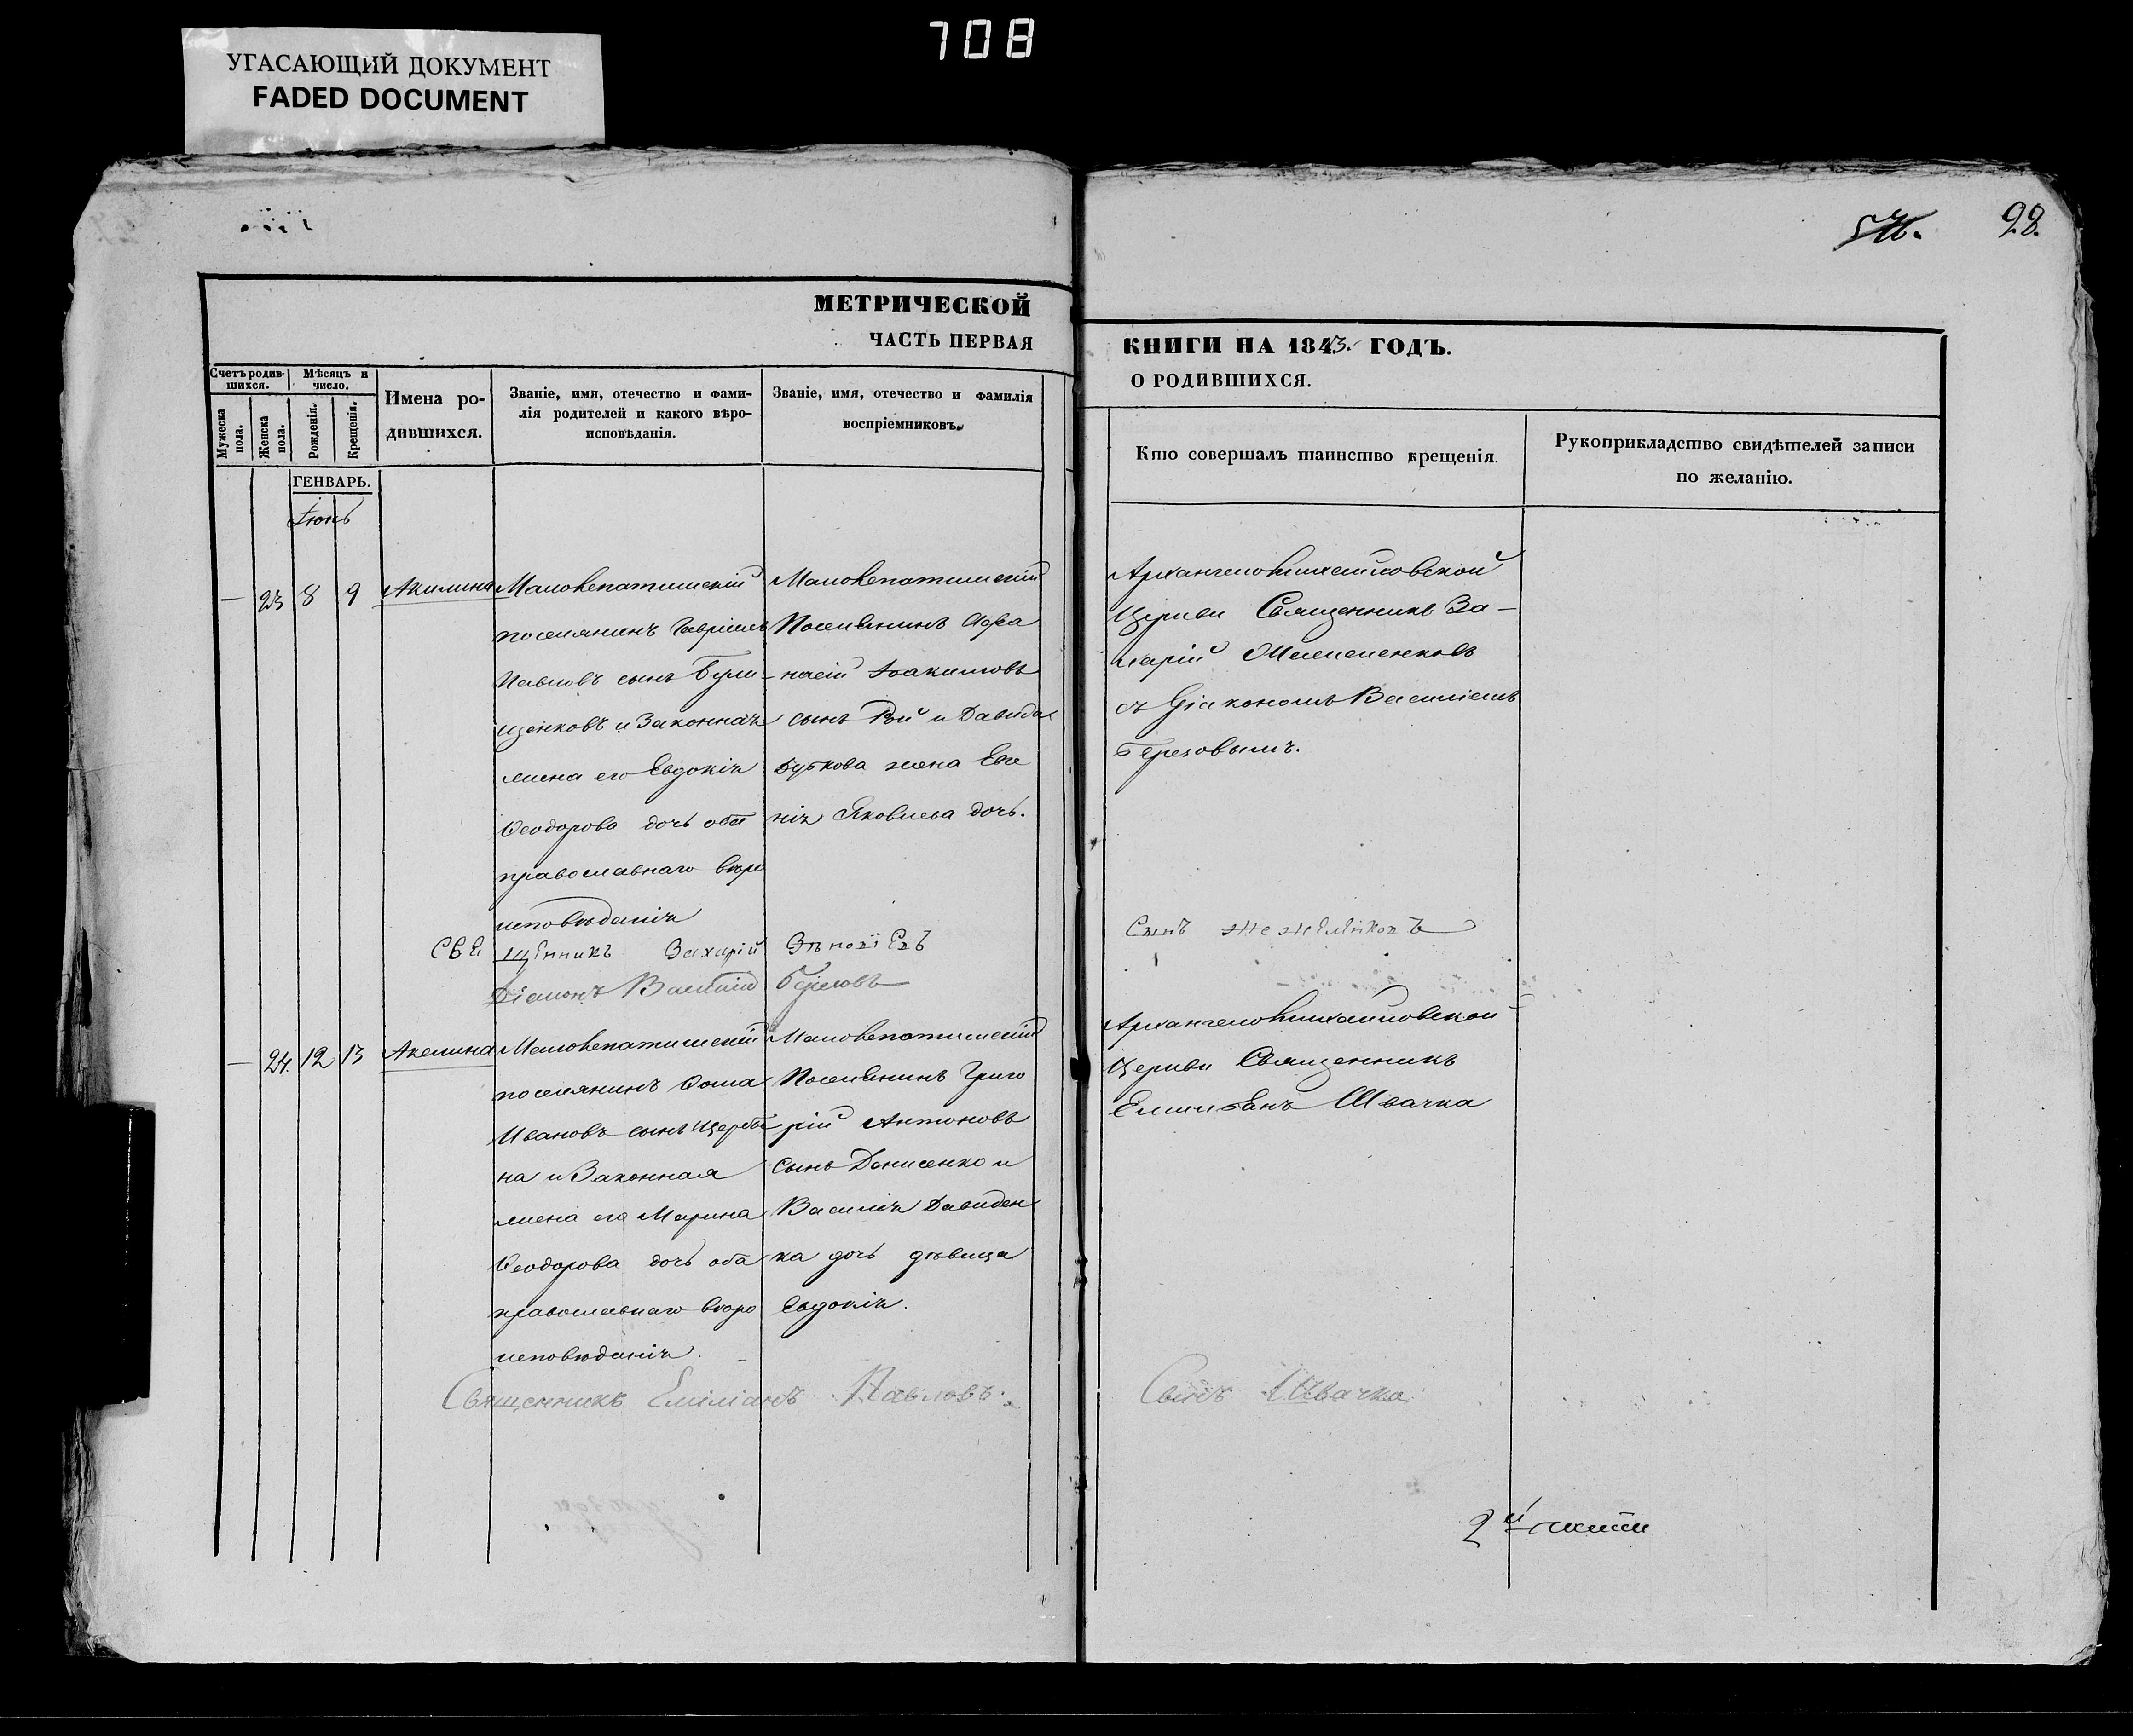 708
УГАСАЮЩИЙ ДОКУМЕНТ
FADED DOCUMENT
98.
МЕТРИЧЕСКОЙ
ЧАСТЬ ПЕРВАЯ
КНИГИ НА 1843. ГОДЪ.
О РОДИВШИХСЯ.
Счетъ родив-
шихся.
Мужеска
пола.
Женска
пола.
Мѣсяцъ и
число.
Рожденія.
Крещенія.
Имена ро-
дившихся.
Званіе, имя, отечество и фами-
лія родителей и какого вѣро-
исповѣданія.
Званіе, имя, отечество и фамилія
воспріемниковъ.
Кто совершалъ таинство крещенія.
Рукоприкладство свидѣтелей записи
по желанію.
ГЕНВАРЬ.
Іюнь
— 23 8 9
Акилина
поселянинъ Гавріилъ
Павловъ сынъ
щенковъ и Законная
жена его Евдокія
Ѳеодорова дочь оба
православнаго вѣро
исповѣданія
Поселянинъ Афа
насій Іоакимовъ
сынъ Рой и Давида
жена Евге
нія Яковлева дочь.
Архангеломихайловской
Церкви Священникъ За-
харій
съ Діакономъ Василіемъ
Березовымъ.
Свещенникъ Захарій
Сынъ
Діаконъ Василій
— 24. 12 13
Акелина
поселянинъ Ѳома
Ивановъ сынъ Щерби
на и Законная
жена его Марина
Ѳеодорова дочь оба
православнаго вѣро
исповѣданія.
Поселянинъ Григо
рій Антоновъ
сынъ Денисенко и
Василія Давиден
ка дочь дѣвица
Евдокія.
Архангеломихайловской
Церкви Священникъ
Емиліанъ Швачка
Священникъ Емиліанъ Павловъ
Сынъ Швачка